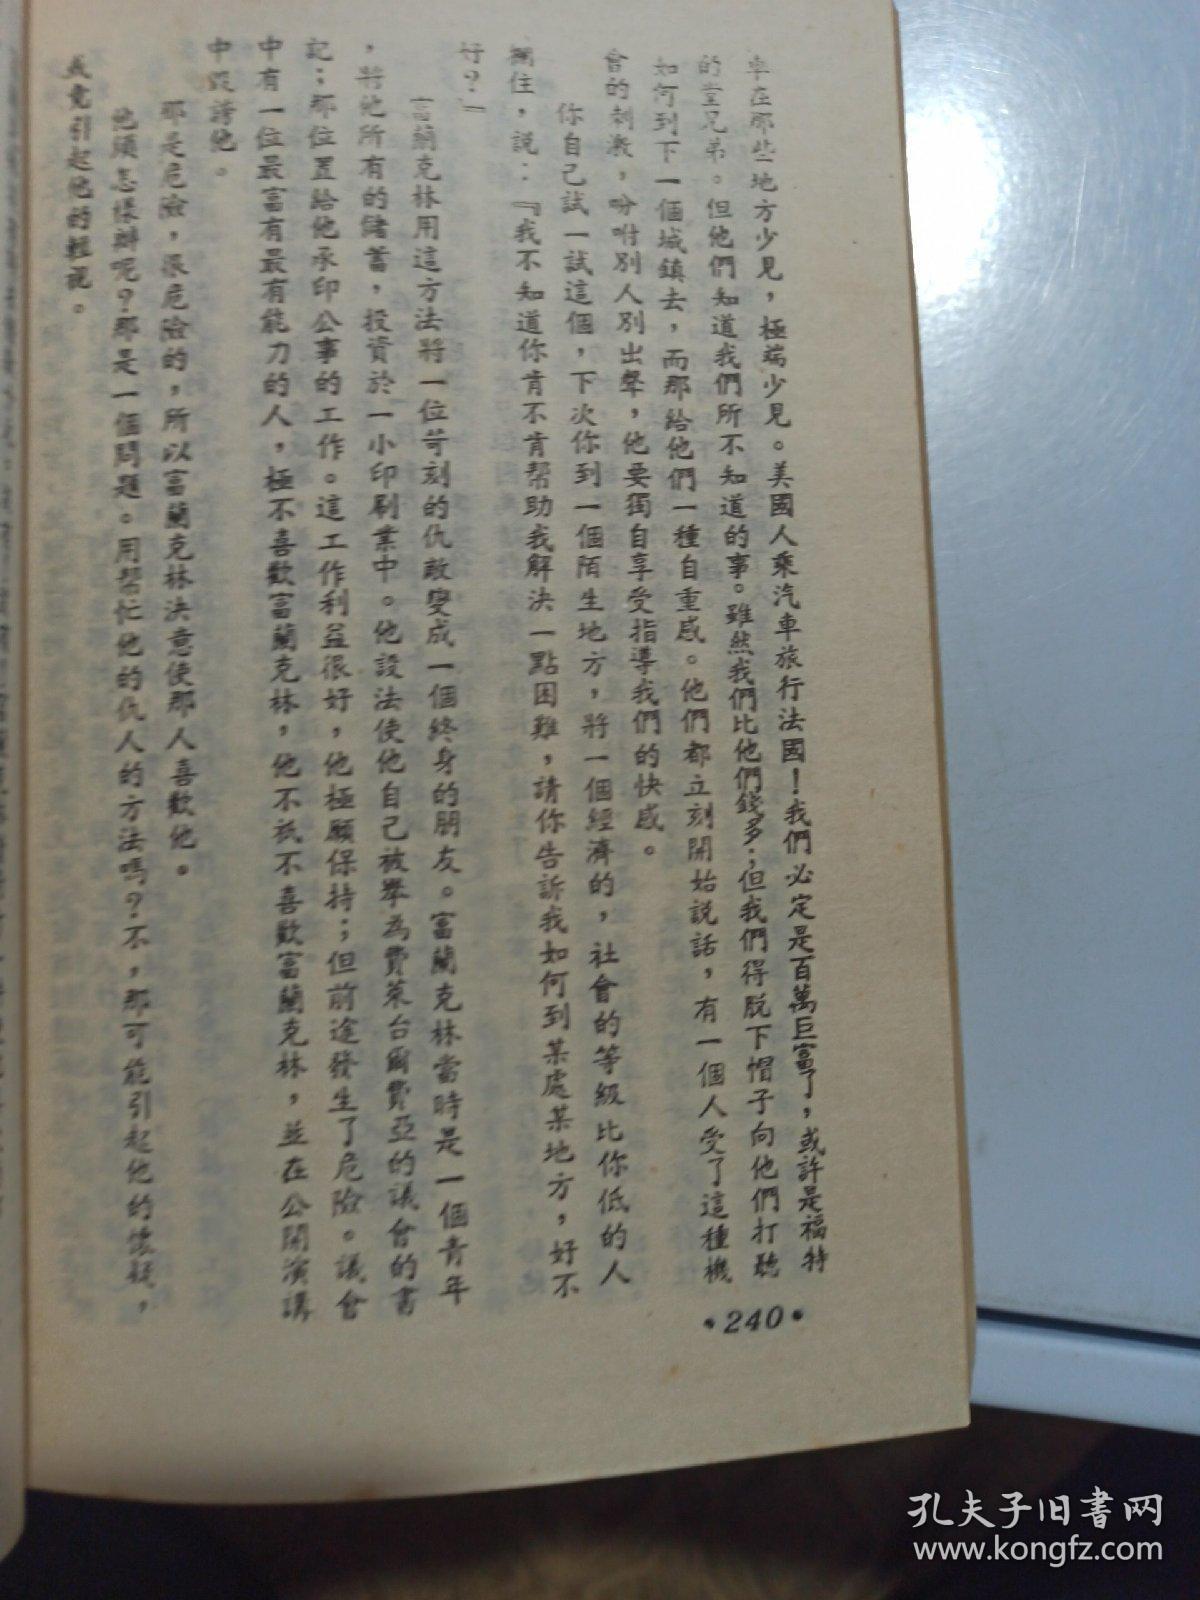 車在那些地方少見，極端少見。美國人乘汽車旅行法國！我們必定是百萬巨富了，或許是福特
的堂兄弟。但他們知道我們所不知道的事。雖然我們比他們錢多；但我們得脫下帽子向他們打聽
如何到下一個城鎮去，而那給他們一種自重感。他們都立刻開始說話，有一個人受了這種機
會的刺激，吩咐別人別出聲，他要獨自享受指導我們的快感。
你自己試一試這個，下次你到一個陌生地方，將一個經濟的，社會的等級比你低的人
攔住，說：『我不知道你肯不肯帮助我解決一點困難，請你告訴我如何到某處某地方，好不
好？』
富蘭克林用這方法將一位苛刻的仇敵變成一個終身的朋友。富蘭克林當時是一個青年
，將他所有的儲蓄，投資於一小印刷業中。他設法使他自己被舉為費萊台爾費亞的議會的書
記；那位置給他承印公事的工作。這工作利益很好，他極願保持；但前途發生了危險。議會
中有一位最富有最有能力的人，極不喜歡富蘭克林，他不祇不喜歡富蘭克林，並在公開演講
中毀謗他。
那是危險，很危險的，所以富蘭克林決意使那人喜歡他。
他須怎樣辦呢？那是一個問題。用帮忙他的仇人的方法嗎？不，那可能引起他的懷疑，
或竟引起他的輕視。
•240•
孔夫子旧书网
www.kongfz.com